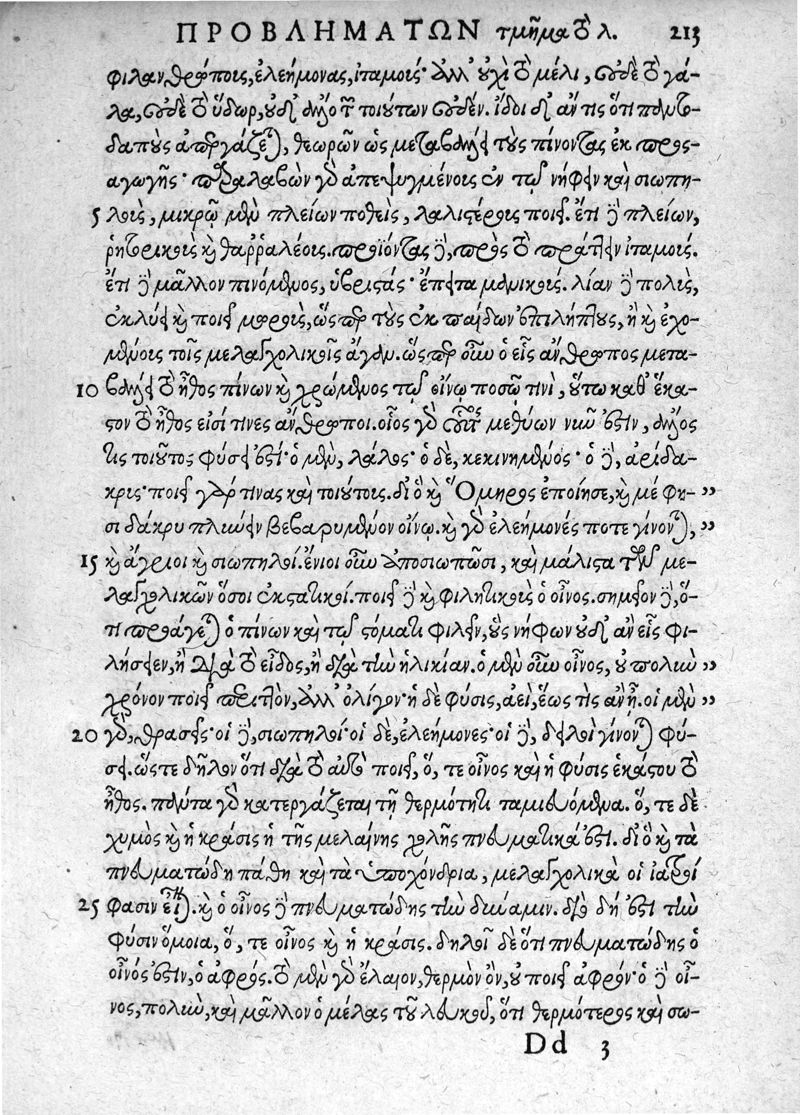 ΠΡΟΒΛΗΜΑΤΩΝ τμῆμα τὸ λ. 213
φιλανθρώπους, ἐλεήμονας, ἰταμούς· ἀλλ' οὐχὶ τὸ μέλι, οὐδὲ τὸ γά-
λα, οὐδὲ τὸ ὕδωρ, οὐδ' ἄλλο τῶν τοιούτων οὐδέν. ἴδοι δ' ἄν τις ὅτι παντο-
δαποὺς ἀπεργάζεται, θεωρῶν ὡς μεταβάλλει τοὺς πίνοντας ἐκ προσ-
αγωγῆς· παραλαβὼν γὰρ ἀπεψυγμένους ἐν τῷ νήφειν καὶ σιωπη-
5 λοὺς, μικρῷ μὲν πλείων ποθεὶς, λαλιστέρους ποιεῖ. ἔτι δὲ πλείων,
ῥητορικοὺς καὶ θαῤῥαλέους. προϊόντας δὲ, πρὸς τὸ πράττειν ἰταμούς.
ἔτι δὲ μᾶλλον πινόμενος, ὑβριστάς· ἔπειτα μανικούς. λίαν δὲ πολὺς,
ἐκλύει καὶ ποιεῖ μωροὺς, ὥσπερ τοὺς ἐκ παίδων ἐπιλήπτους, ἢ καὶ ἐχο-
μένους τοῖς μελαγχολικοῖς ἄγαν. ὥσπερ οὖν ὁ εἷς ἄνθρωπος μετα-
10 βάλλει τὸ ἦθος πίνων καὶ χρώμενος τῷ οἴνῳ ποσῷ τινὶ, οὕτω καθ' ἕκα-
στον τὸ ἦθος εἰσί τινες ἄνθρωποι. οἷος γὰρ οὗτος μεθύων νῦν ἐστιν, ἄλλος
τις τοιοῦτος φύσει ἐστί· ὁ μὲν, λάλος· ὁ δὲ, κεκινημένος· ὁ δὲ, ἀρίδα-
κρυς· ποιεῖ γάρ τινας καὶ τοιούτους. διὸ καὶ Ὅμηρος ἐποίησε, καὶ μέ φη- ”
σι δάκρυ πλώειν βεβαρυμένον οἴνῳ. καὶ γὰρ ἐλεήμονές ποτε γίνονται, ”
15 καὶ ἄγριοι καὶ σιωπηλοί. ἔνιοι οὖν ἀποσιωπῶσι, καὶ μάλιστα τῶν με-
λαγχολικῶν ὅσοι ἐκστατικοί. ποιεῖ δὲ καὶ φιλητικοὺς ὁ οἶνος. σημεῖον δὲ, ὅ-
τι προάγεται ὁ πίνων καὶ τῷ στόματι φιλεῖν, οὓς νήφων οὐδ' ἂν εἷς φι-
λήσειεν, ἢ διὰ τὸ εἶδος, ἢ διὰ τὴν ἡλικίαν. ὁ μὲν οὖν οἶνος, οὐ πολὺν ”
χρόνον ποιεῖ περιττὸν, ἀλλ' ὀλίγον· ἡ δὲ φύσις, ἀεὶ, ἕως τὶς ἂν ᾖ. οἱ μὲν ”
20 γὰρ, θρασεῖς· οἱ δὲ, σιωπηλοί· οἱ δὲ, ἐλεήμονες· οἱ δὲ, δειλοὶ γίνονται φύ-
σει. ὥστε δῆλον ὅτι διὰ τὸ αὐτὸ ποιεῖ, ὅ, τε οἶνος καὶ ἡ φύσις ἑκάστου τὸ
ἦθος. πάντα γὰρ κατεργάζεται τῇ θερμότητι ταμιευόμενα. ὅ, τε δὲ
χυμὸς καὶ ἡ κράσις ἡ τῆς μελαίνης χολῆς πνευματικά ἐστι. διὸ καὶ τὰ
πνευματώδη πάθη καὶ τὰ ὑποχόνδρια, μελαγχολικὰ οἱ ἰατροί
25 φασιν εἶναι. καὶ ὁ οἶνος δὲ πνευματώδης τὴν δύναμιν. διὸ δή ἐστι τὴν
φύσιν ὅμοια, ὅ, τε οἶνος καὶ ἡ κράσις. δηλοῖ δὲ ὅτι πνευματώδης ὁ
οἶνός ἐστιν, ὁ ἀφρός. τὸ μὲν γὰρ ἔλαιον, θερμὸν ὂν, οὐ ποιεῖ ἀφρόν· ὁ δὲ οἶ-
νος, πολὺν, καὶ μᾶλλον ὁ μέλας τοῦ λευκοῦ, ὅτι θερμότερος καὶ σω-
Dd 3